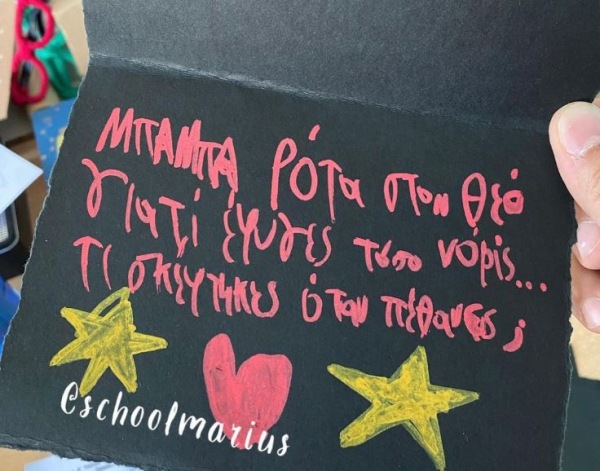 ΜΠΑΜΠΑ ρότα τον θεό
γιατί έφυγες τόσο νόρίς...
Τι σκεύτηκες όταν πέθανες;
@schoolmarius